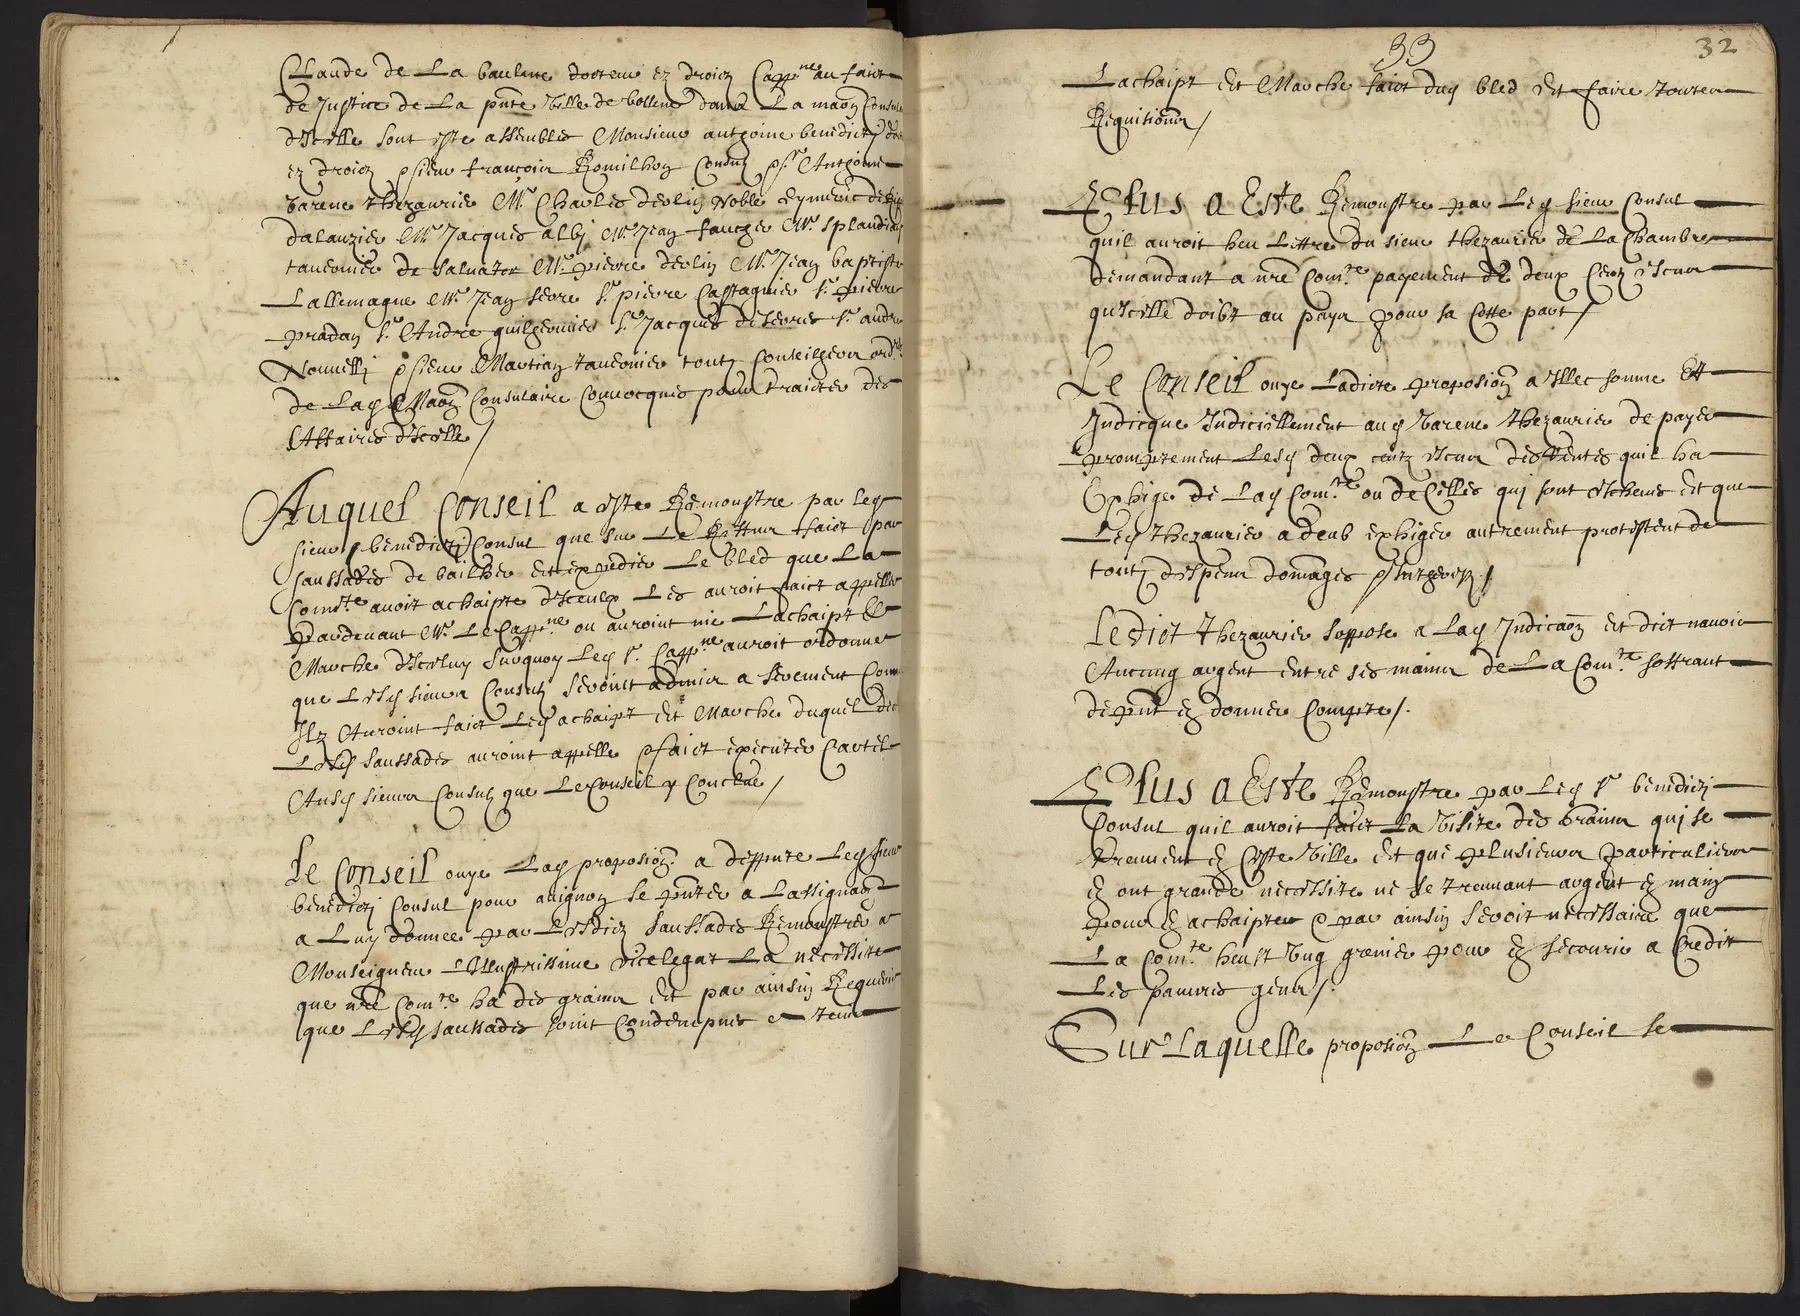 Claude de La baulme docteur ez droictz Cappne au faict
de Justice de La pnte Ville de bollene dans La maon Consul
d'Icelle sont este assembles Monsieur anthoine benedicti doc
ez droictz sieur francois Romilhon Consulz sr Anthoine
barene thezaurier Mr Charles deslin Noble Eymeric
dalauzier Mr Jacques albi Mr Jean faucher Mr Splandian
tavernier de Salvator Mr pierre deslin Mr Jean baptiste
Lallemagne Mr Jean serre sr pierre Castagnier sr pierre
pradan sr Andre guilhermier sr Jacques sr andre
Nouvelli sieur Martian tavernier toutz Conseilhers ordres
de Lad Maon Consulaire Convocqués pour traicter des
Affaires d'Icelle /
Auquel Conseil a este Remonstre par led
sieur benedicti Consul que sur Le Reffus faict par
saussades de bailher et expedier Le bled que La
Comte avoit achaipte d'Iceulx Les auroit faict appeller
pardevant Mr Le Cappne ou auroint nie Lachaipt et
Marche d'Iceluy surquoy Led sr Cappne auroit ordonne
que Lesd sieurs Consulz seroint admis a serement Com
Ilz Auroint faict Led achaipt et Marche duquel dec
Lesd saussades auroint appelle faict executer Cartel
Ausd sieurs Consulz que Le Conseil y Conclue /
Le Conseil ouye Lad proposion a deppute Led sieur
benedicti Consul pour avignon se pnter a Lassignaon
a Luy donnee par Lesdictz saussades Remonstrer a
Monseigneur Illustrissime vicelegat La necessite
que nre Comte ha des grains et par ainsin Requerir
que Lesd saussades soint Condempnes a tenir
33
32
Lachaipt et Marche faict dud bled et faire toutes
Requisitions /
Plus a Este Remonstre par Led sieur Consul
quil auroit heu Lettre du sieur thezaurier de La Chambre
demandant a nre Comte payement de deux Centz escus
qu'Icelle doibt au pays pour sa Cotte part /
Le Conseil ouye Ladicte proposion a Illec somme Et
Indicque Judiciellement aud barene thezaurier de payer
promptement Lesd deux centz escus des Rentes quil ha
Exhige de Lad Comte ou de Celles qui sont escheues et que
Led thezaurier a deub exhiger autrement protestent de
toutz despens domages Intherestz /
Ledict thezaurier soppose a Lad Indicaon et dict navoir
Aucung argent entre ses mains de La Comte soffrant
depnt en donner Compte /.
Plus a Este Remonstre par Led sr benedicti
Consul quil auroit faict La Visite des grains qui se
treuvent en Ceste Ville et que plusieurs particuliers
en ont grande necessite ne se treuvant argent en main
pour en achaipter par ainsin seroit necessaire que
La Comte heust Ung grenier pour en secourir a Credit
Les pauvres gens /.
Sur Laquelle proposion Le Conseil se